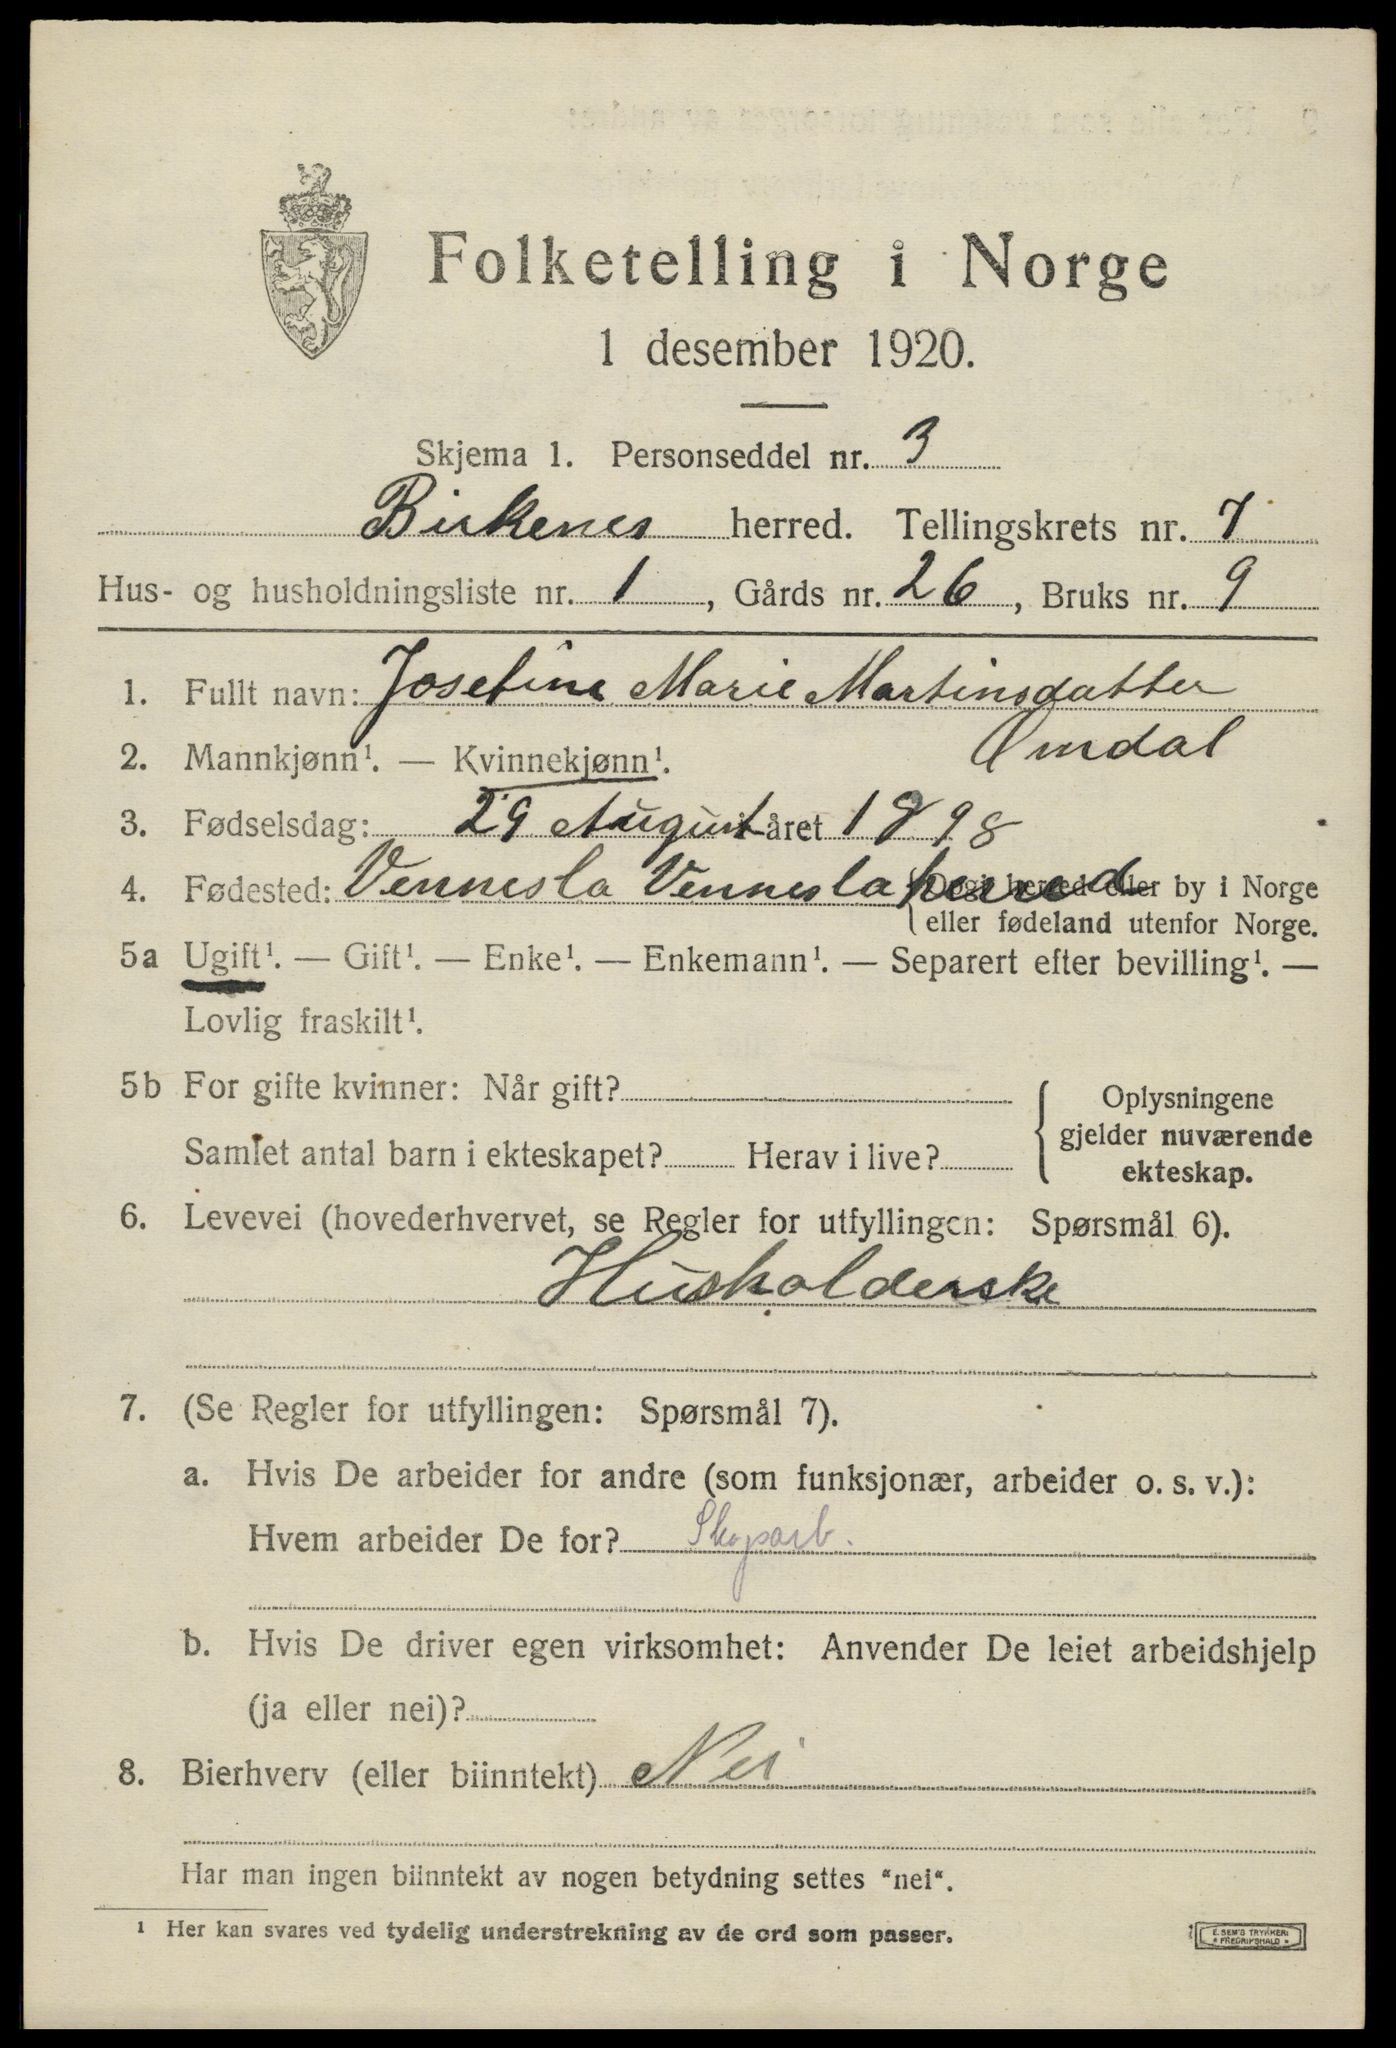 Folketelling i Norge
1 desember 1920.
Skjema 1. Personseddel nr. 3
Birkenes herred. Tellingskrets nr. 7
Hus- og husholdningsliste nr. 1, Gårds nr. 26, Bruks nr. 9
1. Fullt navn: Josefine Marie Martinsdatter
Omdal
2. Mannkjønn¹. — Kvinnekjønn¹.
3. Fødselsdag: 29 August året 1898
4. Fødested: Vennesla Vennesla herred {Opgi herred eller by i Norge
eller fødeland utenfor Norge.
5a Ugift¹. — Gift¹. — Enke¹. — Enkemann¹. — Separert efter bevilling¹. —
Lovlig fraskilt¹.
5b For gifte kvinner: Når gift?
Samlet antal barn i ekteskapet? Herav i live?
Oplysningene
gjelder nuværende
ekteskap.
6. Levevei (hovederhvervet, se Regler for utfyllingen: Spørsmål 6).
Husholderske
7. (Se Regler for utfyllingen: Spørsmål 7).
a. Hvis De arbeider for andre (som funksjonær, arbeider o. s. v.):
Hvem arbeider De for? Skogsarb.
b. Hvis De driver egen virksomhet: Anvender De leiet arbeidshjelp
(ja eller nei)?
8. Bierhverv (eller biinntekt) Nei
Har man ingen biinntekt av nogen betydning settes "nei".
¹ Her kan svares ved tydelig understrekning av de ord som passer.
E. SEM'S TRYKKERI
FREDRIKSHALD